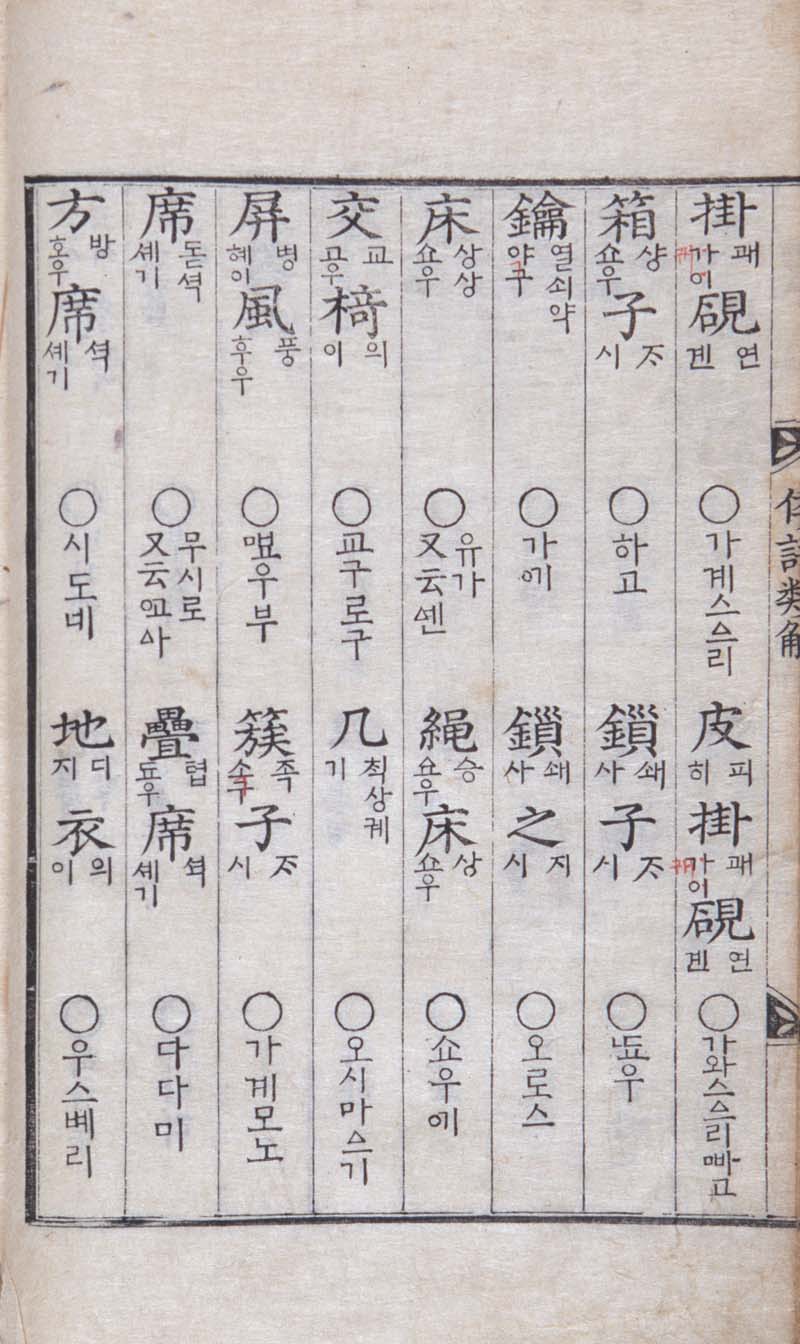 掛 패 가이 硯 연 겐 ○가계스ᅀᅳ리 皮 피 히 掛 패 가이 硯 연 겐 ○가와스ᅀᅳ리빠고
箱 샹 쇼우 子 ᄌᆞ 시 ○하고 鎖 쇄 사 子 ᄌᆞ 시 ○ᄕᅭ우
鑰 열쇠약 약구 ○가ᅁᅵ 鎖 쇄 사 之 지 시 ○오로스
床 상상 쇼우 ○유가 又云셴 繩 승 쇼우 床 상 쇼우 ○쇼우ᅁᅵ
交 교 교우 椅 의 이 ○교구로구 几 칙상궤 기 ○오시마ᅀᅳ기
屛 병 혜이 風 풍 후우 ○ᄜᅭ우부 簇 족 소구 子 ᄌᆞ 시 ○가계모노
席 돋셕 셰기 ○무시로 又云ᅁᅩ사 疊 텹 됴우 席 셕 셰기 ○다다미
方 방 호우 席 셕 셰기 ○시도네 地 디 지 衣 의 이 ○우스베리